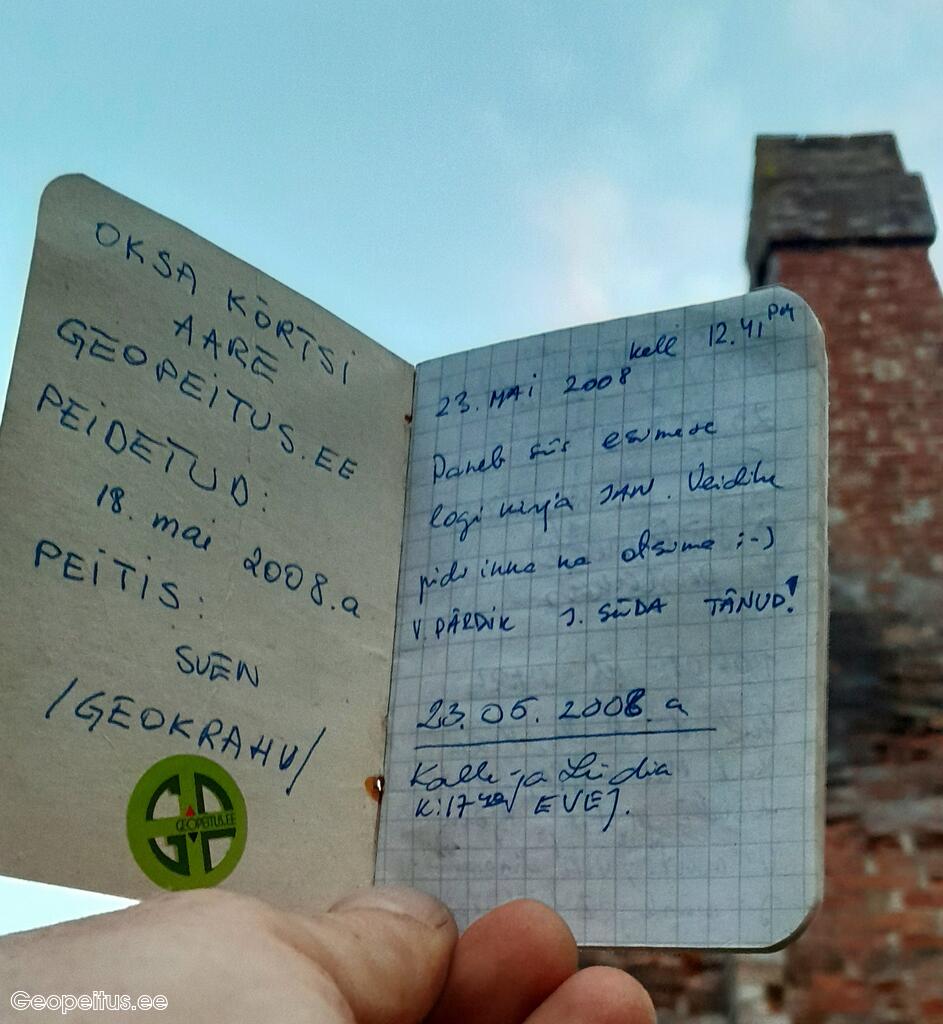 OKSA KÕRTSI
AARE
GEOPEITUS.EE
PEIDETUD:
18. mai 2008.a
PEITIS:
SVEN
/GEOKRAHV/
GEOPEITUS.EE
kell 12.41 PM
23. MAI 2008
Paneb siis esimese
logi kirja JAN. Veidike
pidi inna ka otsima :-)
V. PÄRDIK J. SÜDA TÄNUD!
23.05.2008.a
Kalle ja Lüdia
K:17 EVEJ.
Geopeitus.ee